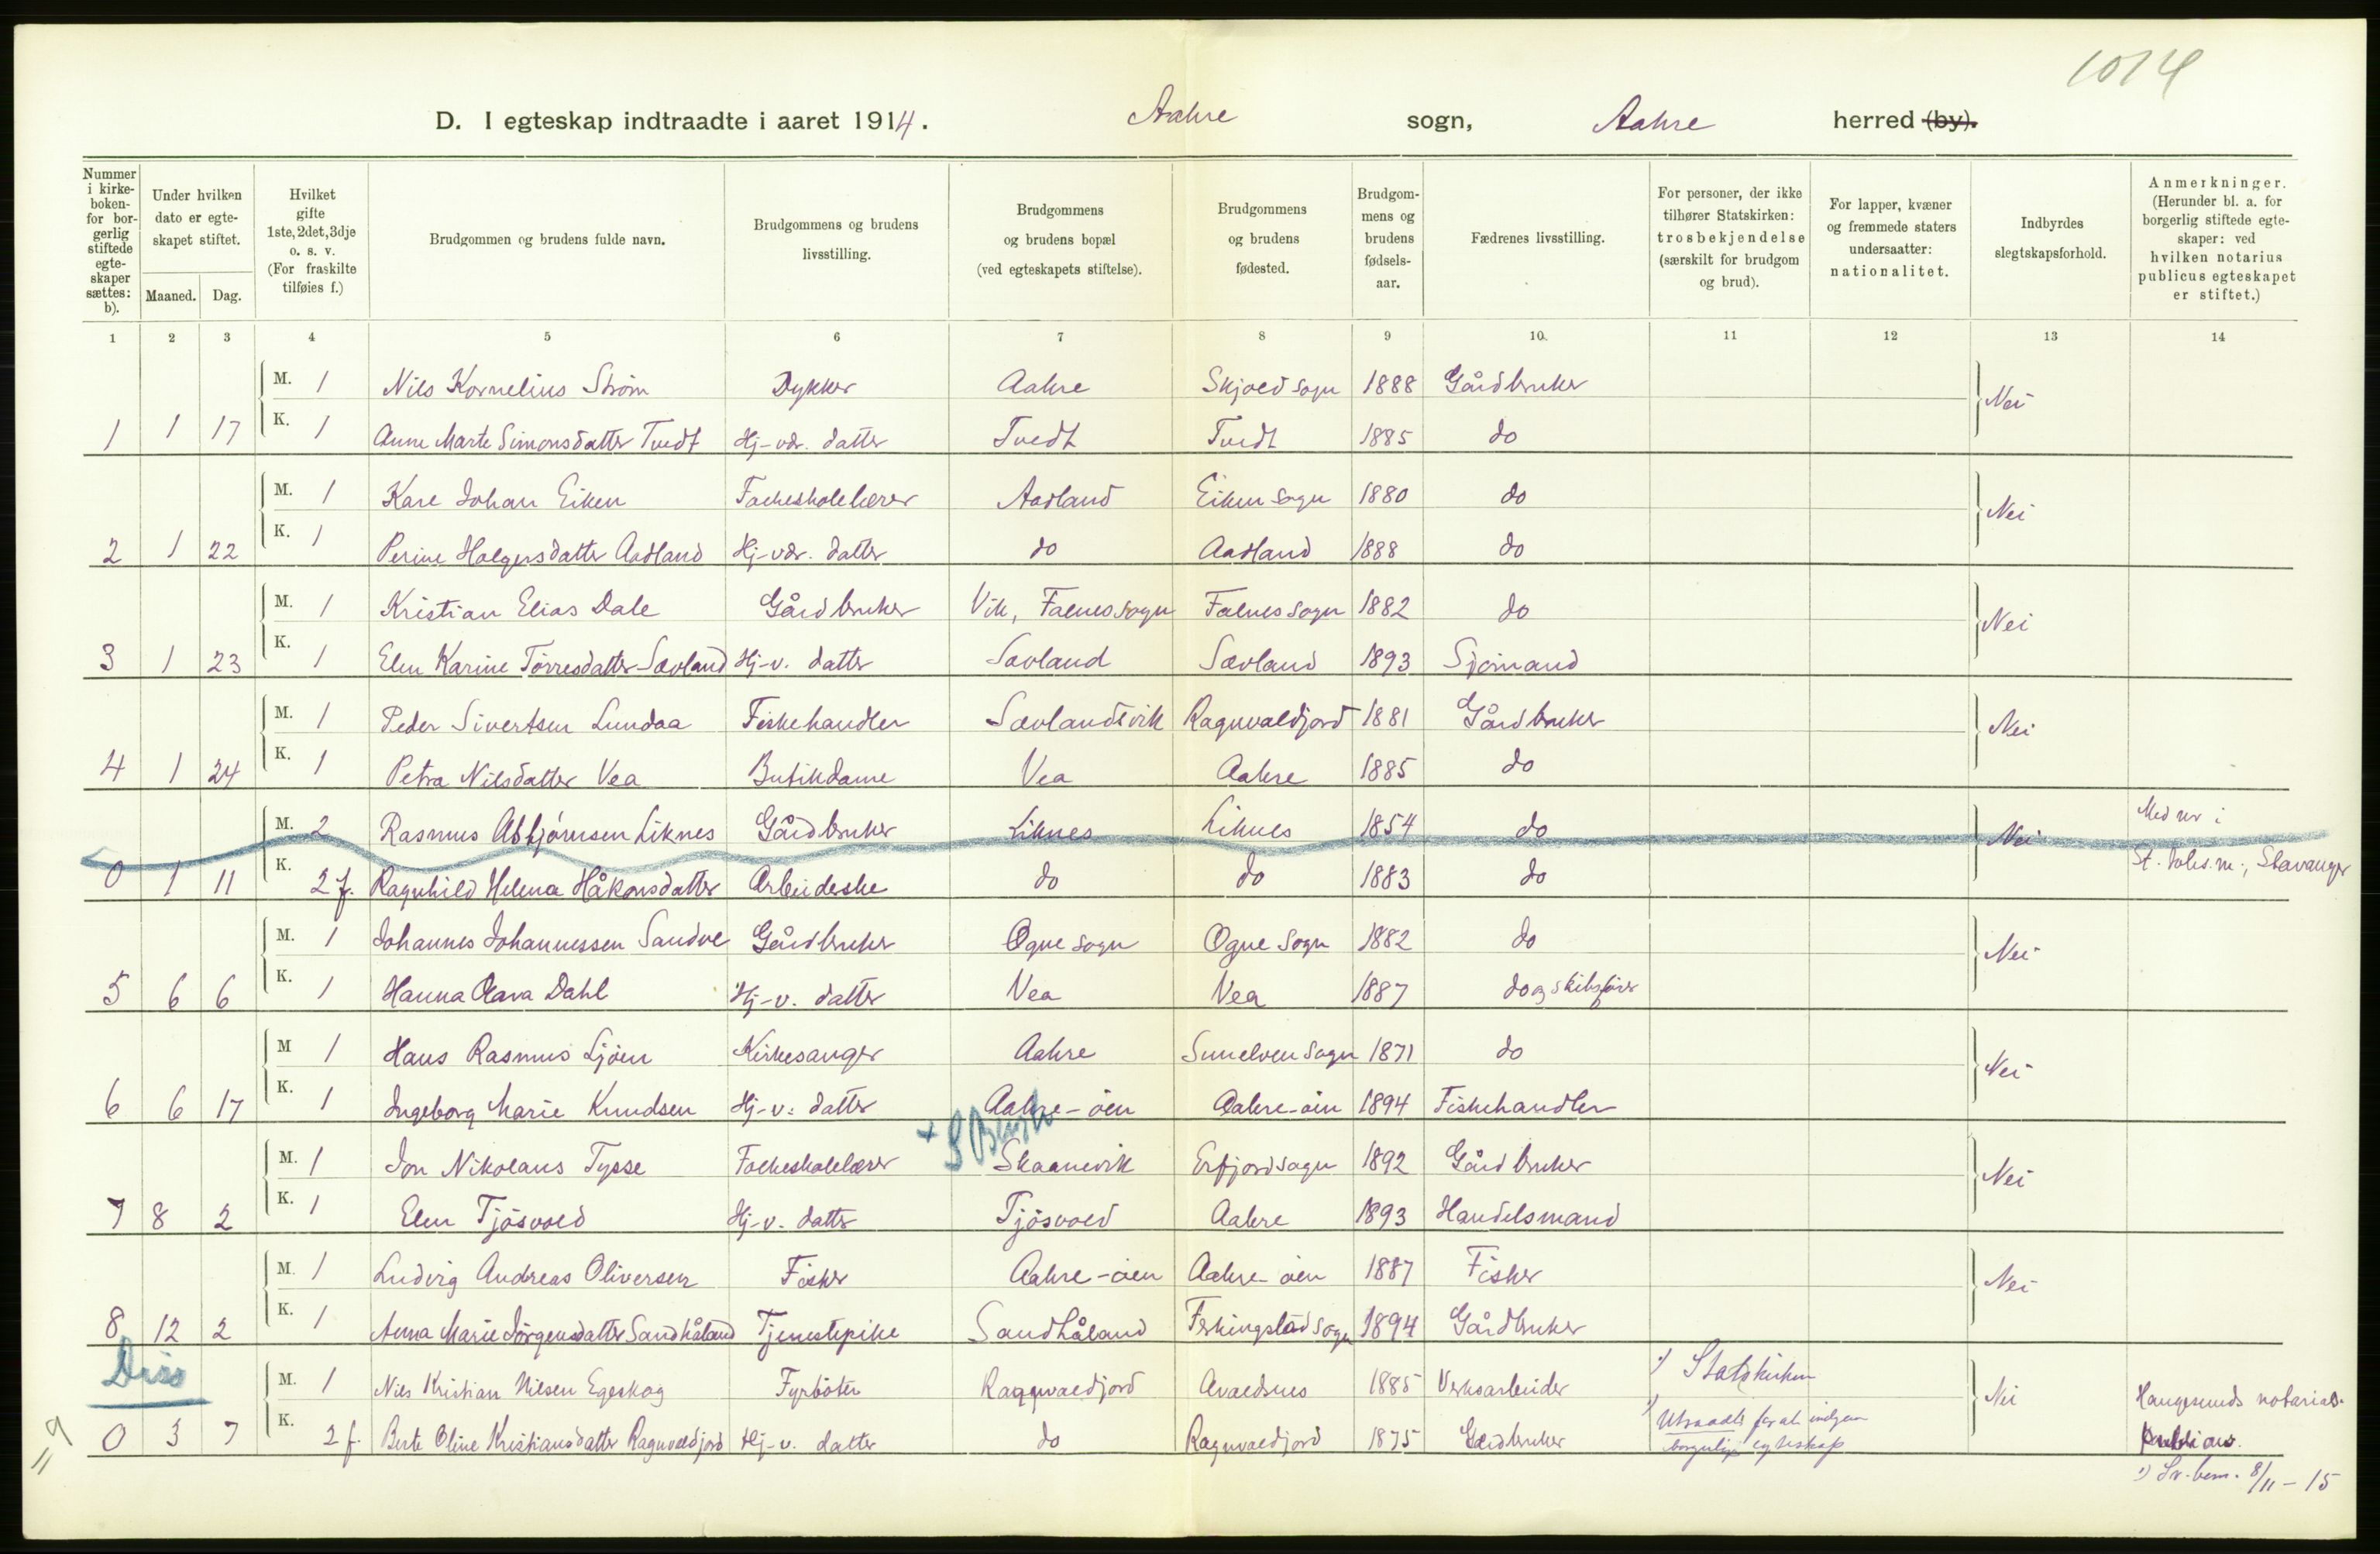 1014
D. I egteskap indtraadte i aaret 1914. Aakre sogn, Aakre herred (by).
Nummer i kirke-boken- for bor-gerlig stiftede egte-skaper sættes: b).
Under hvilken dato er egte-skapet stiftet.
Maaned. Dag.
Hvilket gifte 1ste, 2det, 3dje o. s. v. (For fraskilte tilføies f.)
Brudgommen og brudens fulde navn.
Brudgommens og brudens livsstilling.
Brudgommens og brudens bopæl (ved egteskapets stiftelse).
Brudgommens og brudens fødested.
Brudgom-mens og brudens fødsels-aar.
Fædrenes livsstilling.
For personer, der ikke tilhører Statskirken: trosbekjendelse (særskilt for brudgom og brud).
For lapper, kvæner og fremmede staters undersaatter: nationalitet.
Indbyrdes slegtskapsforhold.
Anmerkninger. (Herunder bl. a. for borgerlig stiftede egte-skaper: ved hvilken notarius publicus egteskapet er stiftet.)
1 2 3 4 5 6 7 8 9 10. 11 12 13 14
M. 1 Nils Kornelius Strøm Dykker Aakre Skjold sogn 1888 Gårdbruker Nei
1 1 17 K. 1 Anne Marte Simonsdatter Tvedt Hj-vær. datter Tvedt Tvedt 1885 do
M. 1 Karl Johan Eiken Folkeskolelærer Aadland Eiken sogn 1880 do Nei
2 1 22 K. 1 Perine Holgersdatter Aadland Hj-vær. datter do Aadland 1888 do
M. 1 Kristian Elias Dale Gårdbruker Vik, Falnes sogn Falnes sogn 1882 do Nei
3 1 23 K. 1 Elen Karine Tørresdatter Sævland Hj-v. datter Sævland Sævland 1893 Sjømand
M. 1 Peder Sivertsen Lundaa Fiskehandler Sævlandsvik Ragnvaldjord 1881 Gårdbruker Nei
4 1 24 K. 1 Petra Nilsdatter Vea Butikdame Vea Aakre 1885 do
M. 2 Rasmus Abbjørnsen Liknes Gårdbruker Liknes Liknes 1854 do Nei Med nr i
0 1 11 K. 2 f. Ragnhild Helena Håkonsdatter Arbeiderske do do 1883 do Stavanger
M. 1 Johannes Johannessen Sandve Gårdbruker Ogne sogn Ogne sogn 1882 do Nei
5 6 6 K. 1 Hanna Olava Dahl Hj-v. datter Vea Vea 1887 do og skibsfører
M 1 Hans Rasmus Ljøen Kirkesanger Aakre Sunelven sogn 1871 do Nei
6 6 17 K. 1 Ingeborg Marie Knudsen Hj-v. datter Aakre-øen Aakre-øen 1894 Fiskehandler
M. 1 Jon Nikolaus Tysse Folkeskolelærer + Skaanevik Erfjord sogn 1892 Gårdbruker Nei
7 8 2 K. 1 Elen Tjøsvold Hj-v. datter Tjøsvold Aakre 1893 Handelsmand
M. 1 Ludvig Andreas Oliversen Fisker Aakre-øen Aakre-øen 1887 Fisker Nei
8 12 2 K. 1 Anna Marie Jørgensdatter Sandhåland Tjenestepike Sandhåland Ferkingstad sogn 1894 Gårdbruker
Diss M. 1 Nils Kristian Nilsen Egeskog Fyrbøter Ragnvaldjord Avaldsnes 1885 Verksarbeider 1) Statskirken Nei Haugesunds notarius
0 3 7 K. 2 f. Berte Oline Kristiansdatter Ragnvaldjord Hj-v. datter do Ragnvaldjord 1875 Gårdbruker 1) Utraadt for at indgaa borgerlig egteskap publicus.
1) Sv. bem. 8/11 - 15